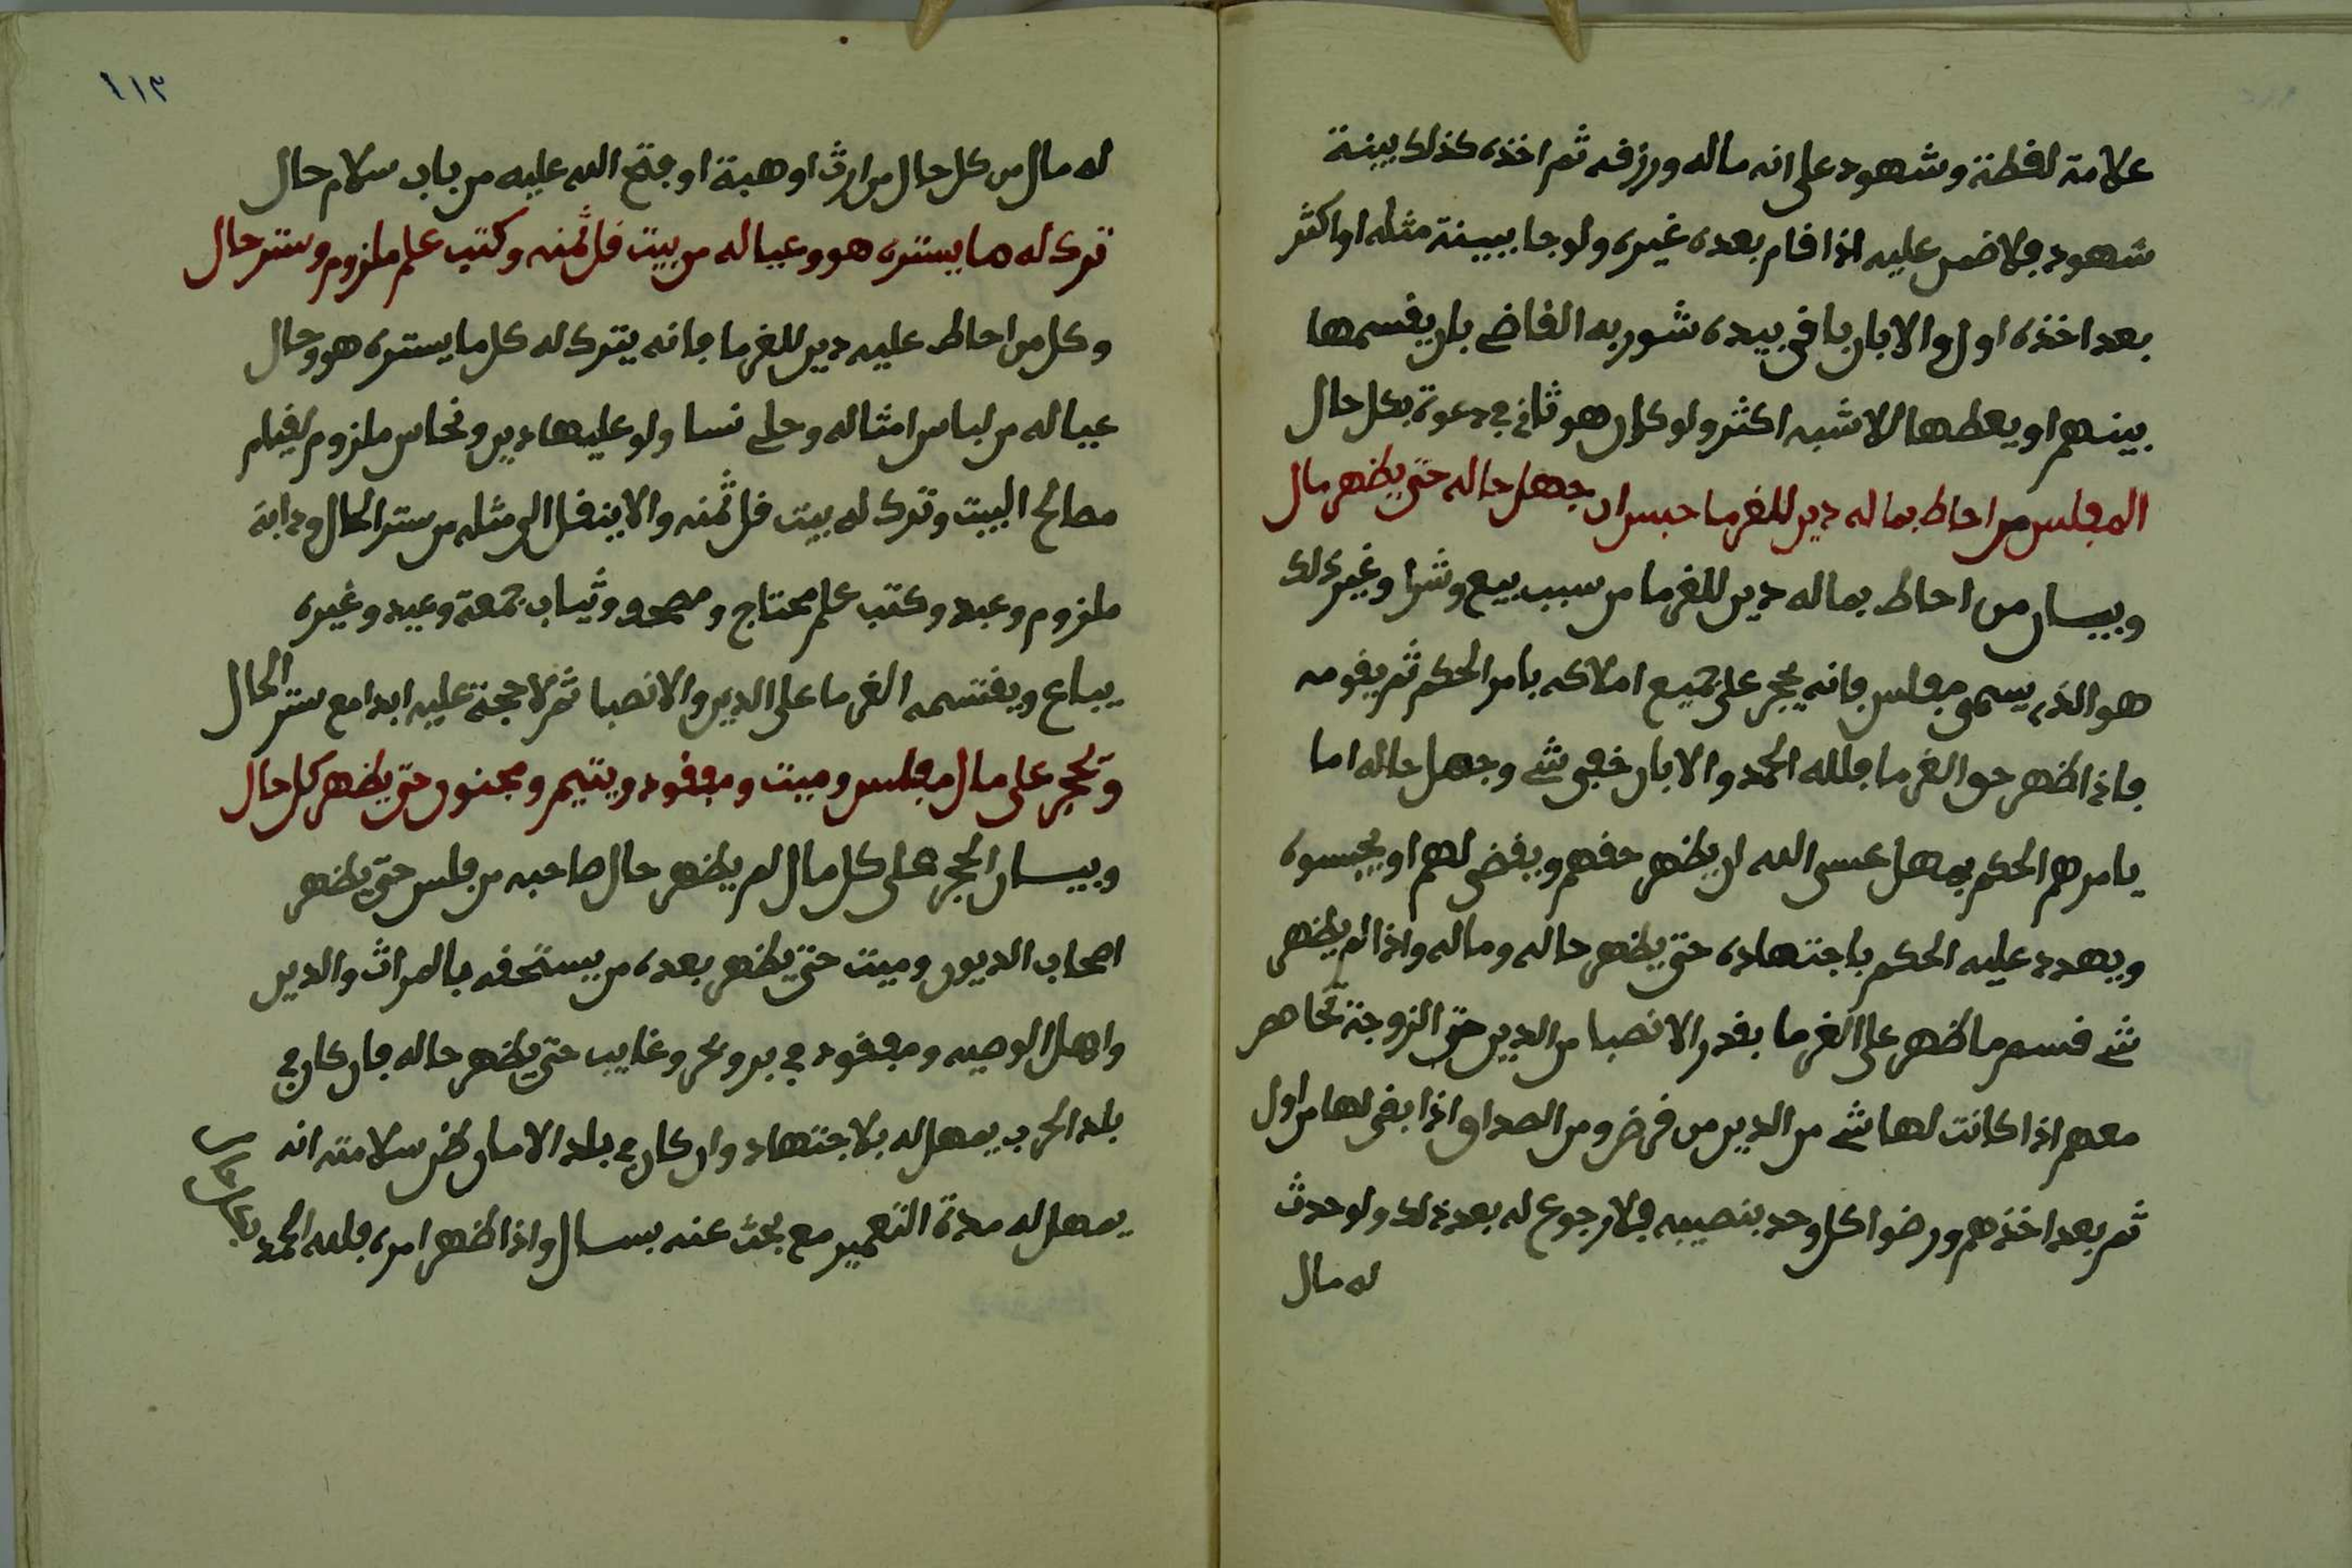 علامة لقطة وشهود على انه ماله ورزقه ثم اخذه كذلك ببينة
شهود فلا ضمن عليه اذا قام بعده غيره ولو جا ببينة مثله او اكثر
بعد اخذه اول والا بان باقي بيده شور به القاضي بان يقسمها
بينهم او يعطها الاشبه اكثر ولو كان هو ثاني في دعوة بكل حال
المفلس من احاط بماله دين للغرما حبس ان جهل حاله حتى يظهر مال
وبيسان من احاط بماله دين للغرما من سبب بيع وشرا وغير ذلك
هو الذي يسمى مفلس فانه يحجر على جميع املاكه بامر الحكم ثم يقومه
فاذا ظهر حق الغرما فلله الحمد والا بان خفى شي وجهل حاله اما
يامرهم الحكم بمهل عسى الله ان يظهر حقهم ويقضى لهم او يحبسوه
ويهدد عليه الحكم باجتهاده حتى يظهر حاله وماله واذا لم يظهر
شي قسم ما ظهر على الغرما بقدر الانصبا من الدين حتى الزوجة تحاصر
معهم اذا كانت لها شي من الدين من قرض ومن الصداق اذا بقى لها من اول
ثم بعد اخذهم ورضوا كل وحد بنصيبه فلا رجوع له بعد ذلك ولو حدث
له مال
١١٣
له مال من كل حال من ارث او هبة او فتح الله عليه من باب سلام حال
ترك له ما يستره هو وعياله من بيت قل ثمنه وكتب علم ملزوم وستر حال
وكل من احاط عليه دين للغرما فانه يترك له كل ما يستره هو وحال
عياله من لباس امثاله وحلي نسا ولو عليها دين ونحاس ملزوم لقيلم
مصالح البيت وترك له بيت قل ثمنه والا ينقل الى مثله من ستر الحال ودابة
ملزوم وعبد وكتب علم محتاج ومصحف وثياب جمعة وعيد وغيره
يباع ويقتسمه الغرما على الدين والانصبا ثم لا حجة عليه ابدا مع ستر الحال
وتحجر على مال مفلس وميت ومفقود ويتيم ومجنون حتى يظهر كل حال
وبيسان الحجر على كل مال لم يظهر حال صاحبه من فلس حتى يظهر
اصحاب الديون وميت حتى يظهر بعده من يستحقه بالمراث والدين
واهل الوصيه ومفقود في بر وبحر وغايب حتى يظهر حاله فان كان في
بلد الحرب يمهل له بلاجتهاد وان كان في بلد الامان ظن سلامته انه
يمهل له مدة التعمير مع بحث عنه بسال واذا ظهر امره فلله الحمد